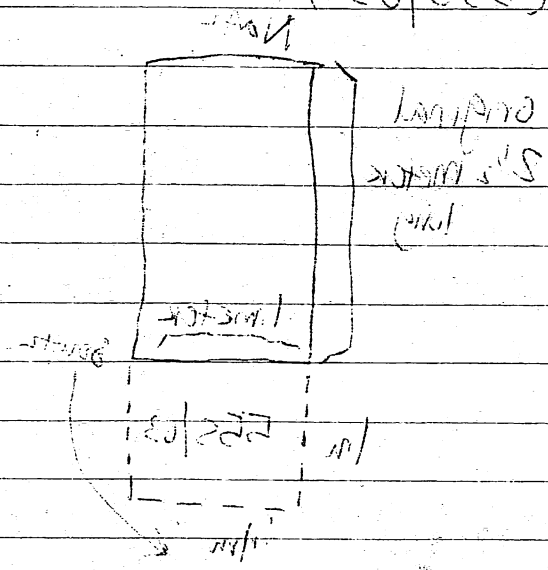 North
original
2 1/2 meter
long
1 meter
South
555/03
1m
1m